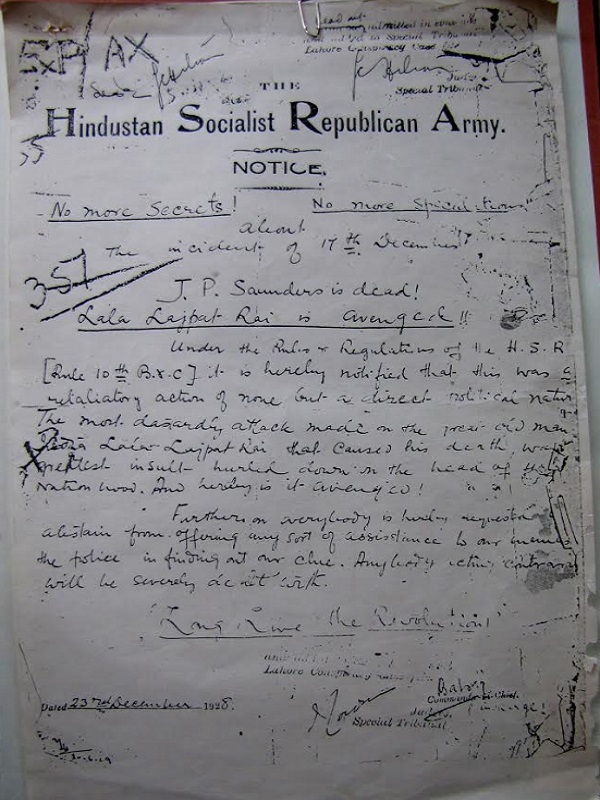 EXP/AX
admitted in
Special Tribunal
Lahore Conspiracy Case
Judge
Special Tribunal
THE
Hindustan Socialist Republican Army.
NOTICE.
No more Secrets! No more Special
about
The incident of 17th December
357
J. P. Saunders is dead!
Lala Lajpat Rai is avenged!!
Under the Rules & Regulations of the H. S. R
[Rule 10th B. & C] it is hereby notified that this was a
retaliatory action of none but a direct political natur
The most dastardly attack made on the great old man
Lala Lajpat Rai that caused his death was
greatest insult hurled down on the head of the
Nationhood. And hereby is it avenged!
Further on everybody is hereby requested
abstain from offering any sort of assistance to our enemies
the police in finding out our clue. Anybody acting contrary
will be severely dealt with.
"Long Live the Revolution"
Lahore Conspiracy Case
Dated 23rd December 1928.
Commander-in-Chief.
Judge
Special Tribunal